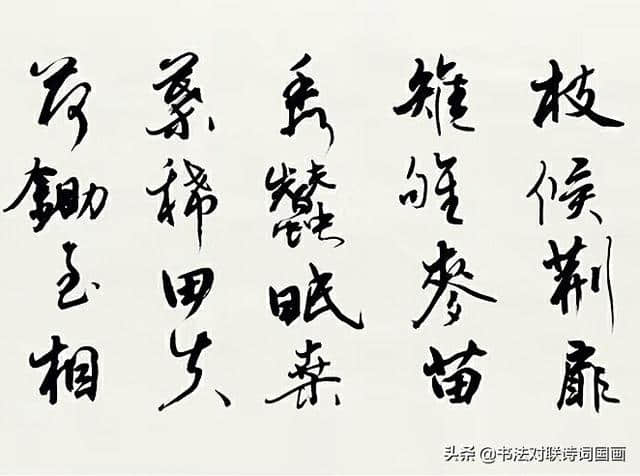 枝候荊扉
雉雊麥苗
秀蠶眠桒
葉稀田夫
荷鋤至相
头条 @书法对联诗词国画